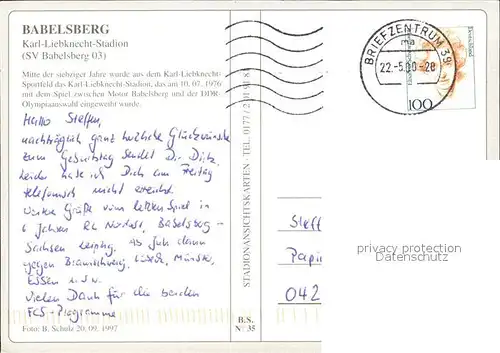 BABELSBERG
Karl-Liebknecht-Stadion
(SV Babelsberg 03)
Mitte der siebziger Jahre wurde aus dem Karl-Liebknecht-
Sportfeld das Karl-Liebknecht-Stadion, das am 10. 07. 1976
mit dem Spiel zwischen Motor Babelsberg und der DDR-
Olympiaauswahl eingeweiht wurde.
Hallo Steffen,
nachträglich ganz herzliche Glückwünsche
zum Geburtstag sendet Dir
leider habe ich Dich am Freitag
telefonisch nicht erreicht.
Grüße vom letzten Spiel in
6 Jahren RL Nordost, Babelsberg -
Sachsen Leipzig. Ab Juli dann
gegen Braunschweig, Lübeck, Münster,
Essen u.s.w.
Vielen Dank für die beiden
FCS-Programme
Foto: B. Schulz 20. 09. 1997
STADIONANSICHTSKARTEN - TEL. 0177 / 2
B.S.
Nr. 35
BRIEFZENTRUM 39
ma
22.-5.00-20
Deutschland
100
Steff
Papi
042
privacy protection
Datenschutz